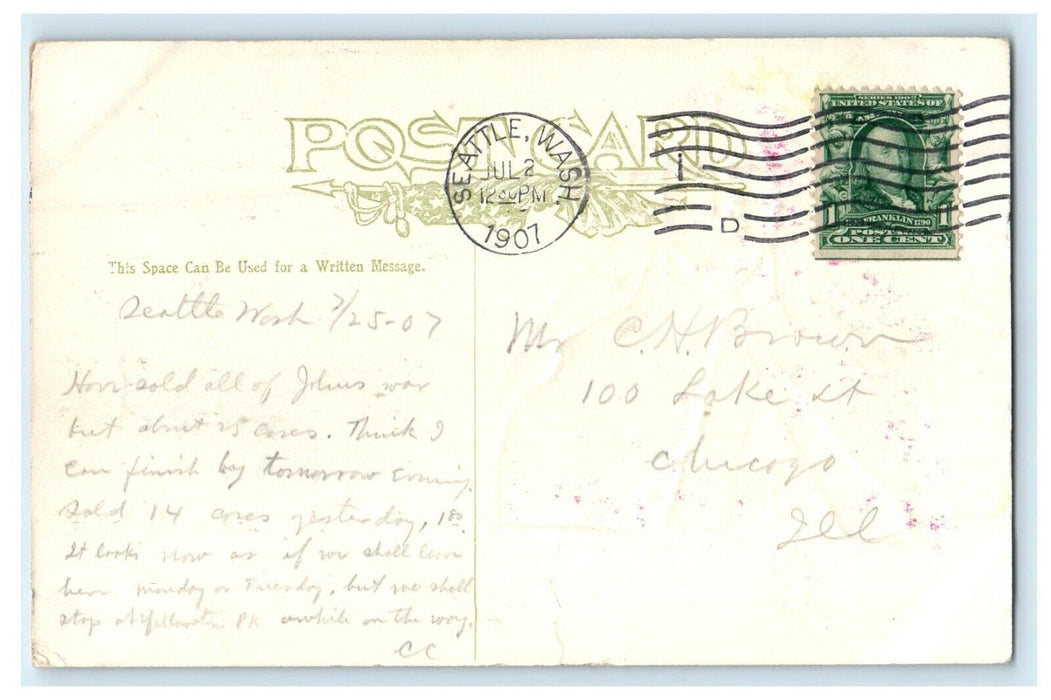 POST CARD
SEATTLE, WASH.
JUL 2
12 00 PM
1907
D
SERIES 1902
UNITED STATES OF
FRANKLIN 1790
POSTAGE
1 ONE CENT 1
This Space Can Be Used for a Written Message.
Seattle Wash 7/25-07
Have sold all of Johns war
but about 25 cases. Think I
can finish by tomorrow evening.
Sold 14 cases yesterday,
It looks now as if we shall leave
here monday or Tuesday, but we shall
stop at Yellowstone Pk awhile on the way.
CC
Mr C. H. Brown
100 Lake St
Chicago
Ill